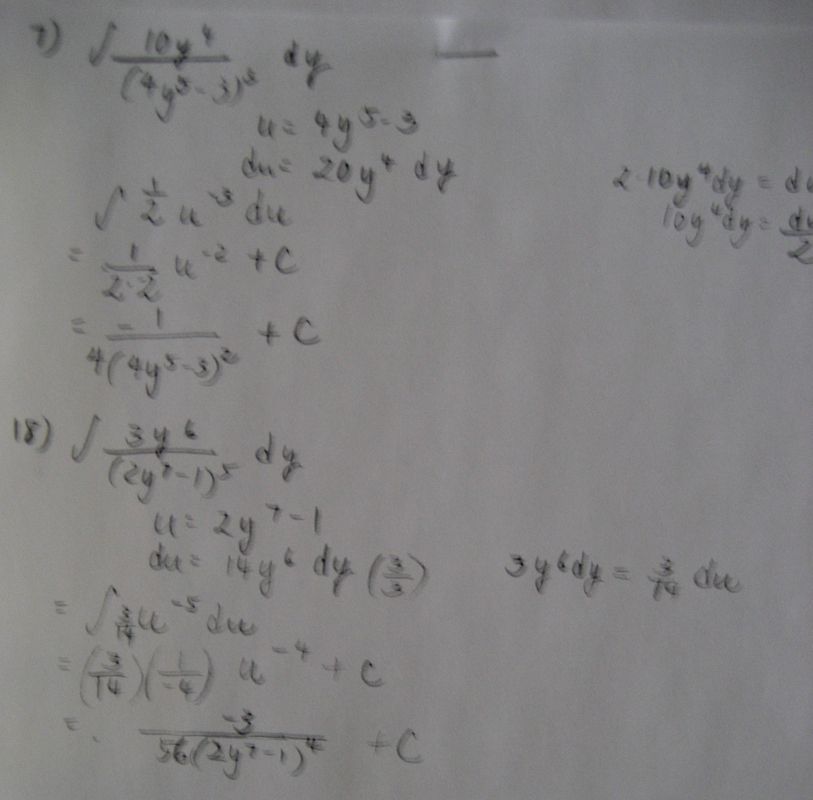 7) ∫ 10y⁴/(4y⁵-3)³ dy
u = 4y⁵-3
du = 20y⁴ dy
2·10y⁴dy = du
∫ 1/2 u⁻³ du
10y⁴dy = du/2
= 1/(2·-2) u⁻² + C
= -1/(4(4y⁵-3)²) + C
18) ∫ 3y⁶/(2y⁷-1)⁵ dy
u = 2y⁷-1
du = 14y⁶ dy (3/3)
3y⁶dy = 3/14 du
= ∫ 3/14 u⁻⁵ du
= (3/14)(1/-4) u⁻⁴ + C
= -3/(56(2y⁷-1)⁴) + C